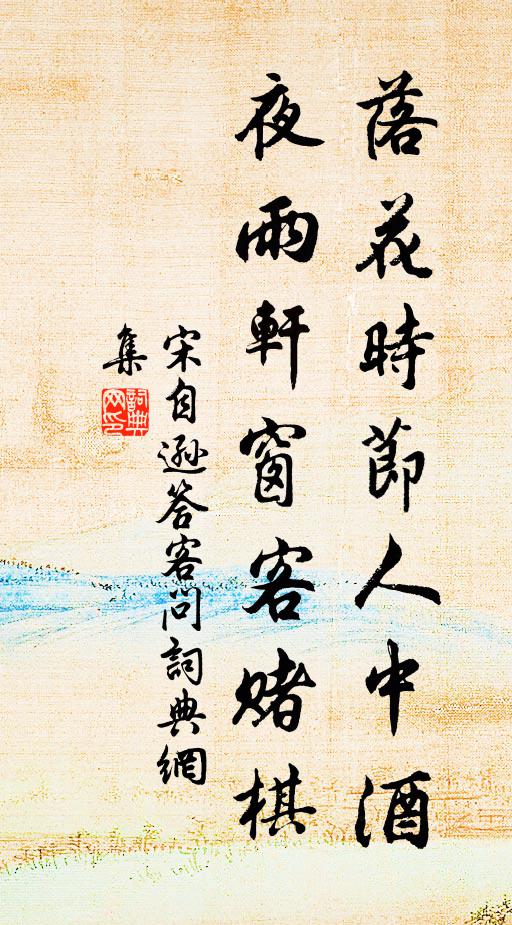 落花時節人中酒
夜雨軒窗客賭棋
宋自遜答客問詞典網
集
詞典
网印